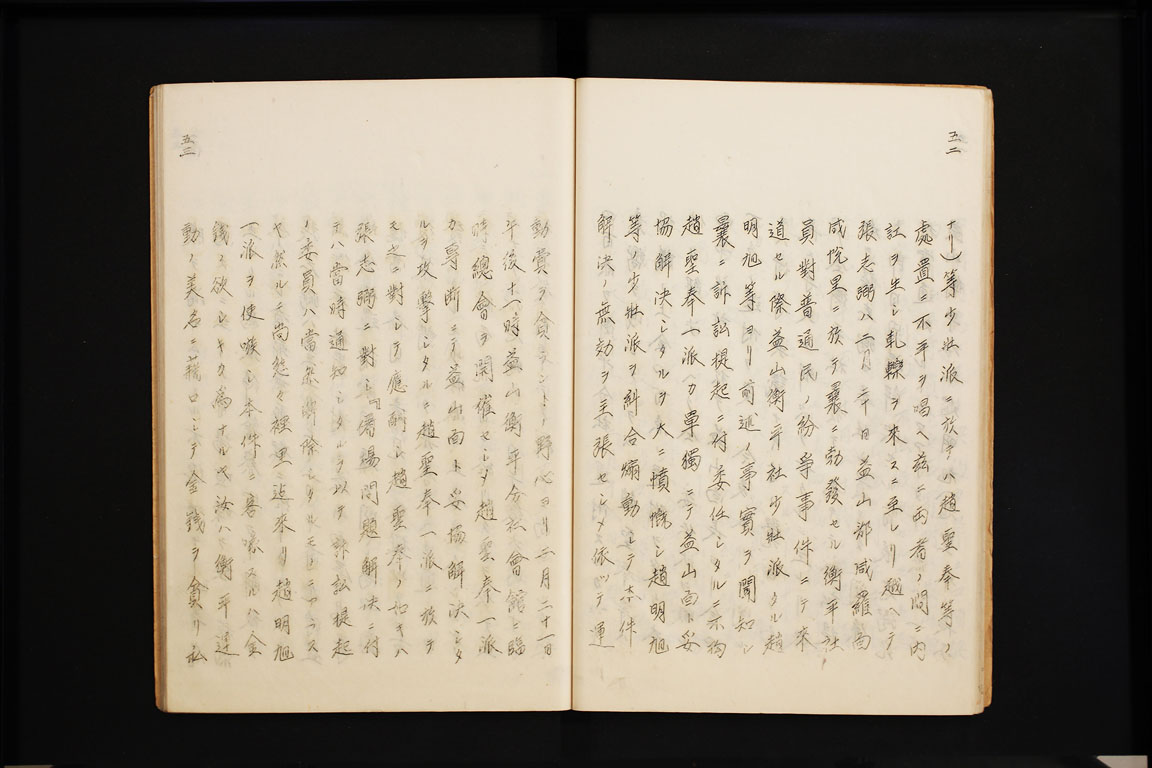 五二
ナリ)等少壯派ニ於テハ趙聖奉等ノ
處置ニ不平ヲ唱ヘ茲ニ両者ノ間ニ内
訌ヲ生シ軋轢ヲ来スニ至レリ越ヘテ
張志弼ハ二月二十日益山郡咸羅面
咸悅里ニ於テ曩ニ勃發セル衡平社
員對普通民ノ紛爭事件ニテ来
道セル際益山衡平社少壯派タル趙
明旭等ヨリ前述ノ事實ヲ聞知シ
曩ニ訴訟提起ニ付委任シタルニ不拘
趙聖奉一派カ單獨ニテ益山面ト妥
協解決シタルヲ大ニ憤慨シ趙明旭
等ノ少壯派ヲ糾合煽動シテ本件
解決ノ無効ヲ主張セシメ依ツテ運
五三
動賞ヲ貪ラントノ野心ヨリ二月二十一日
午後十一時益山衡平分社會館ニ臨
時總會ヲ開催セシメ趙聖奉一派
カ專断ニテ益山面ト妥協解決シタ
ルヲ攻撃シタルニ趙聖奉一派ニ於テ
モ之ニ對シテ應酬シ趙聖奉ノ如キハ
張志弼ニ對シ『屠場問題解決ニ付
テハ當時通知シタルヲ以テ訴訟提起
ノ委員ハ當然解除シタルモノニアラス
ヤ然ルニ尚態々裡里迄来リ趙明旭
一派ヲ使嗾シ本件ニ容喙スルハ金
錢ヲ欲シキカ為ナルヤ汝ハ衡平運
動ノ美名ニ藉口シテ金錢ヲ貪リ私